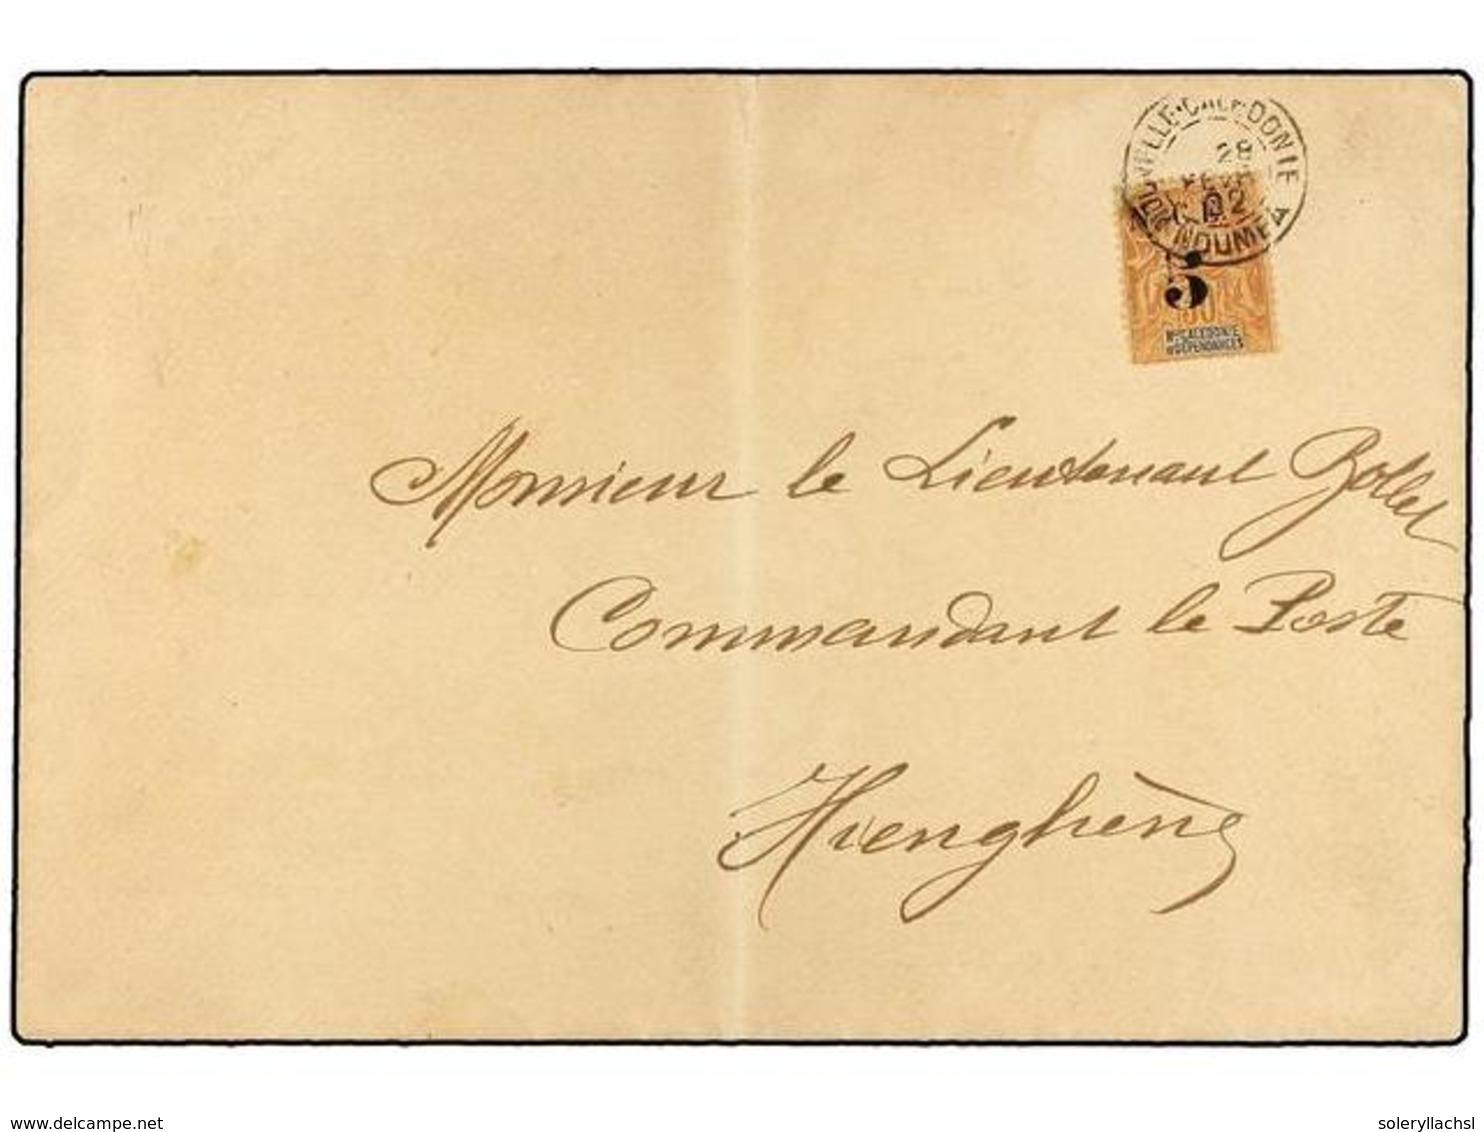 NOUVELLE-CALEDONIE
28
FEVR
02
NOUMEA
5
30
Nlle CALEDONIE
et DÉPENDANCES
Monsieur le Lieutenant
Commandant le Poste
Hienghène
delcampe.net
soleryllachsl